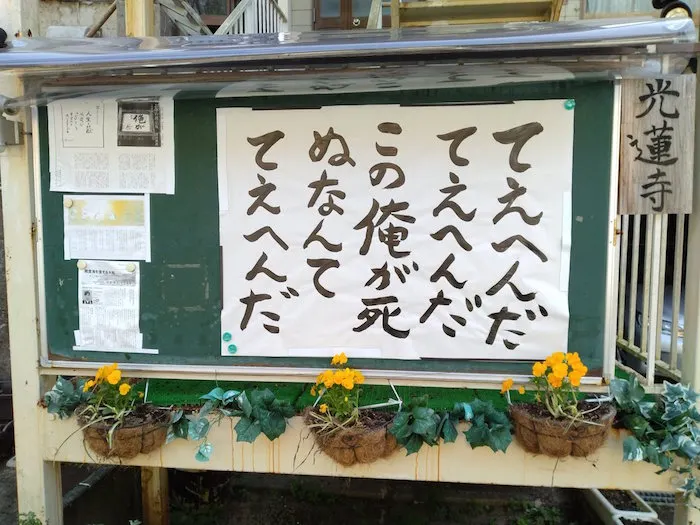 光蓮寺
てえへんだ
てえへんだ
この俺が死
ぬなんて
てえへんだ
俺が